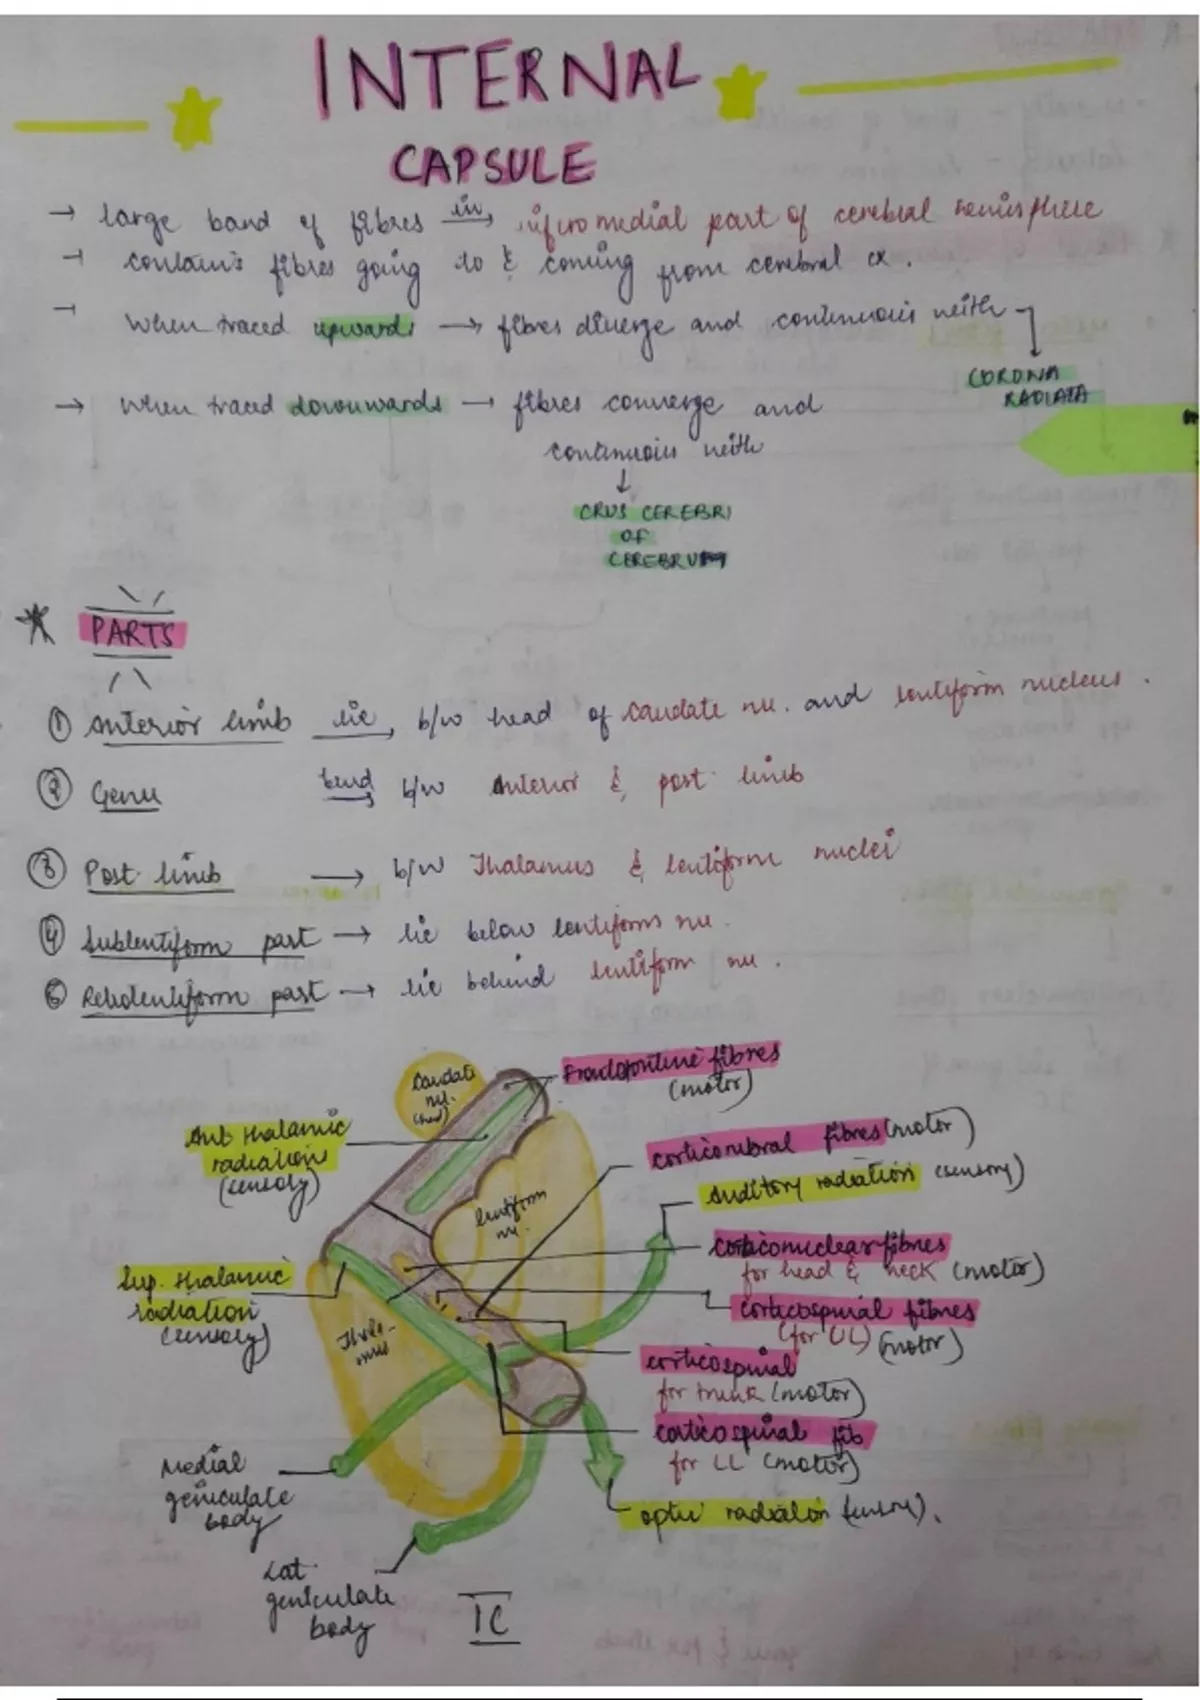 INTERNAL
CAPSULE
→ large band of fibres in, inferomedial part of cerebral hemisphere
→ contains fibres going to & coming from cerebral cx.
→ When traced upwards → fibres diverge and continuous with
CORONA
RADIATA
→ When traced downwards → fibres converge and
continuous with
↓
CRUS CEREBRI
OF
CEREBRUM
* PARTS
① Anterior limb lie, b/w head of Caudate nu. and lentiform nucleus.
② Genu bend b/w Anterior & post limb
③ Post limb → b/w Thalamus & lentiform nuclei
④ Sublentiform part → lie below lentiform nu.
⑤ Retrolentiform part → lie behind lentiform nu.
Caudate
nu.
(head)
Frontopontine fibres
(motor)
Ant thalamic
radiation
(sensory)
lentiform
nu.
fibres (motor)
Auditory radiation (sensory)
corticonuclear fibres
for head & neck (motor)
Sup. thalamic
radiation
(sensory)
corticospinal fibres
(for UL) (motor)
Thala-
mus
corticospinal
for trunk (motor)
corticospinal fib
for LL (motor)
Medial
geniculate
body
optic radiation (sensory).
Lat
geniculate
body
IC